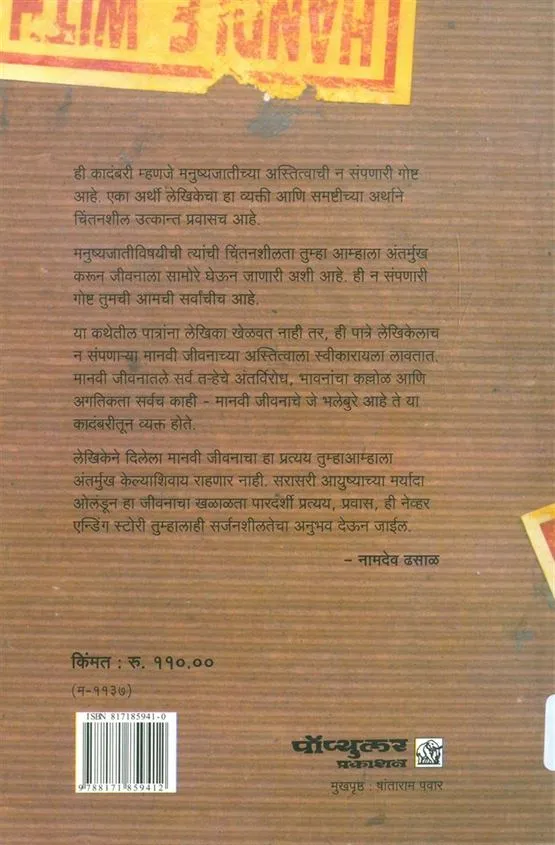 HANDLE WITH
ही कादंबरी म्हणजे मनुष्यजातीच्या अस्तित्वाची न संपणारी गोष्ट
आहे. एका अर्थी लेखिकेचा हा व्यक्ती आणि समष्टीच्या अर्थाने
चिंतनशील उत्कान्त प्रवासच आहे.
मनुष्यजातीविषयीची त्यांची चिंतनशीलता तुम्हा आम्हाला अंतर्मुख
करून जीवनाला सामोरे घेऊन जाणारी अशी आहे. ही न संपणारी
गोष्ट तुमची आमची सर्वांचीच आहे.
या कथेतील पात्रांना लेखिका खेळवत नाही तर, ही पात्रे लेखिकेलाच
न संपणाऱ्या मानवी जीवनाच्या अस्तित्वाला स्वीकारायला लावतात.
मानवी जीवनातले सर्व तऱ्हेचे अंतर्विरोध, भावनांचा कल्लोळ आणि
अगतिकता सर्वच काही – मानवी जीवनाचे जे भलेबुरे आहे ते या
कादंबरीतून व्यक्त होते.
लेखिकेने दिलेला मानवी जीवनाचा हा प्रत्यय तुम्हाआम्हाला
अंतर्मुख केल्याशिवाय राहणार नाही. सरासरी आयुष्याच्या मर्यादा
ओलंडून हा जीवनाचा खळाळता पारदर्शी प्रत्यय, प्रवास, ही नेव्हर
एन्डिंग स्टोरी तुम्हालाही सर्जनशीलतेचा अनुभव देऊन जाईल.
– नामदेव ढसाळ
किंमत : रु. ११०.००
(म-११३७)
ISBN 817185941-0
9 788171 859412
पॉप्युलर
प्रकाशन
मुखपृष्ठ : षांताराम पवार